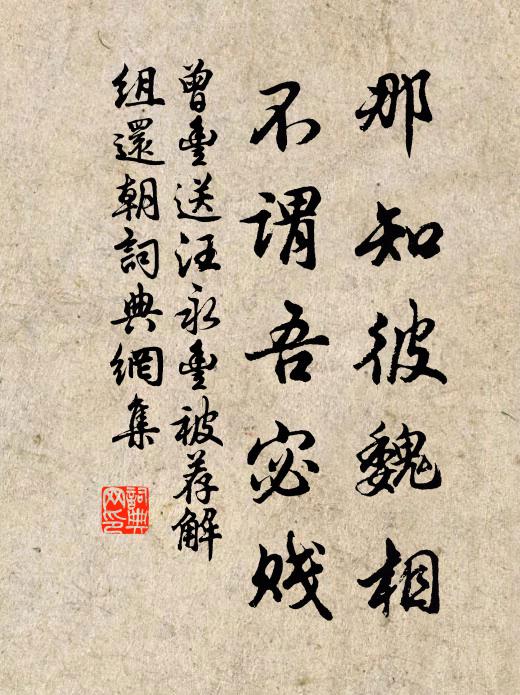 那知彼魏相
不谓吾宓贱
曾丰送汪永丰被荐解
组还朝词典网集
詞典
网印